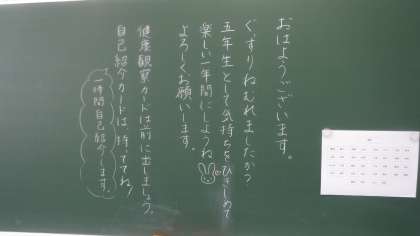 おはようございます。
ぐっすりねむれましたか?
五年生として気持ちをひきしめて
楽しい一年間にしようね
よろしくお願いします。
健康観察カードは前に出しましょう。
自己紹介カードは持っててね!
一時間自己紹介します。